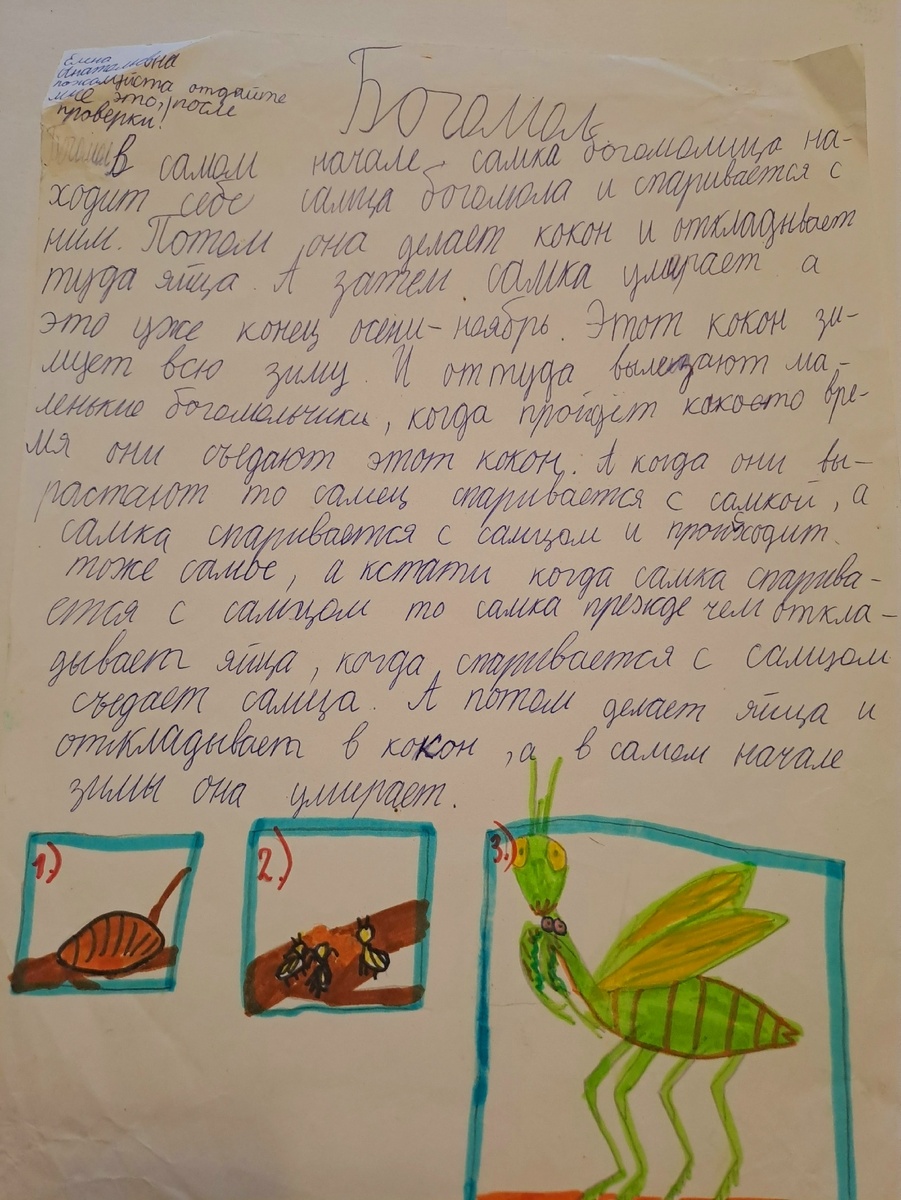 Елена
Анатольевна
пожалуйста отдайте
мне это, после
проверки!
Богомол
В самом начале самка богомолица на-
ходит себе самца богомола и спаривается с
ним. Потом она делает кокон и откладывает
туда яйца. А затем самка умирает а
это уже конец осени-ноябрь. Этот кокон зи-
мует всю зиму. И оттуда вылезают ма-
ленькие богомольчики, когда пройдёт какоето вре-
мя они съедают этот кокон. А когда они вы-
растают то самец спаривается с самкой, а
самка спаривается с самцом и происходит
тоже самое, а кстати когда самка спарива-
ется с самцом то самка прежде чем откла-
дывает яйца, когда спаривается с самцом
съедает самца. А потом делает яйца и
откладывает в кокон, а в самом начале
зимы она умирает.
1.)
2.)
3.)